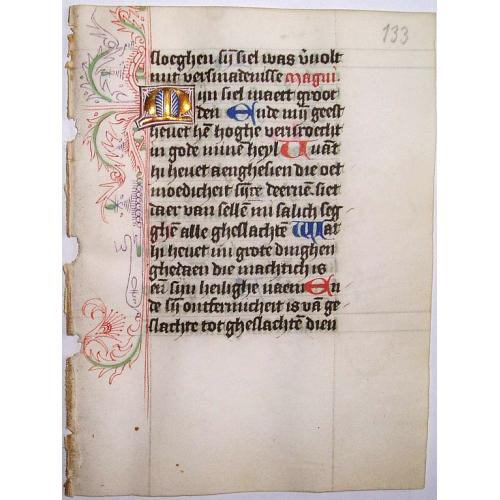 133
sloeghen sij siel was v̄volt
mit versmadenisse Magni.
Mijn siel maect groot
den Ende mijn geest
hevet hē hoghe vervrocht
in gode minē heyl Uāt
hi hevet aenghesien die oet
moedicheit sijnre deernē siet
daer van sellen mi salich seg
ghē alle gheslachtē Wat
hi hevet mi grote dinghen
ghedaen die machtich is
eñ sijn heilighe naem En
de sij ontfermicheit is vā ge
slachte tot gheslachtē dien